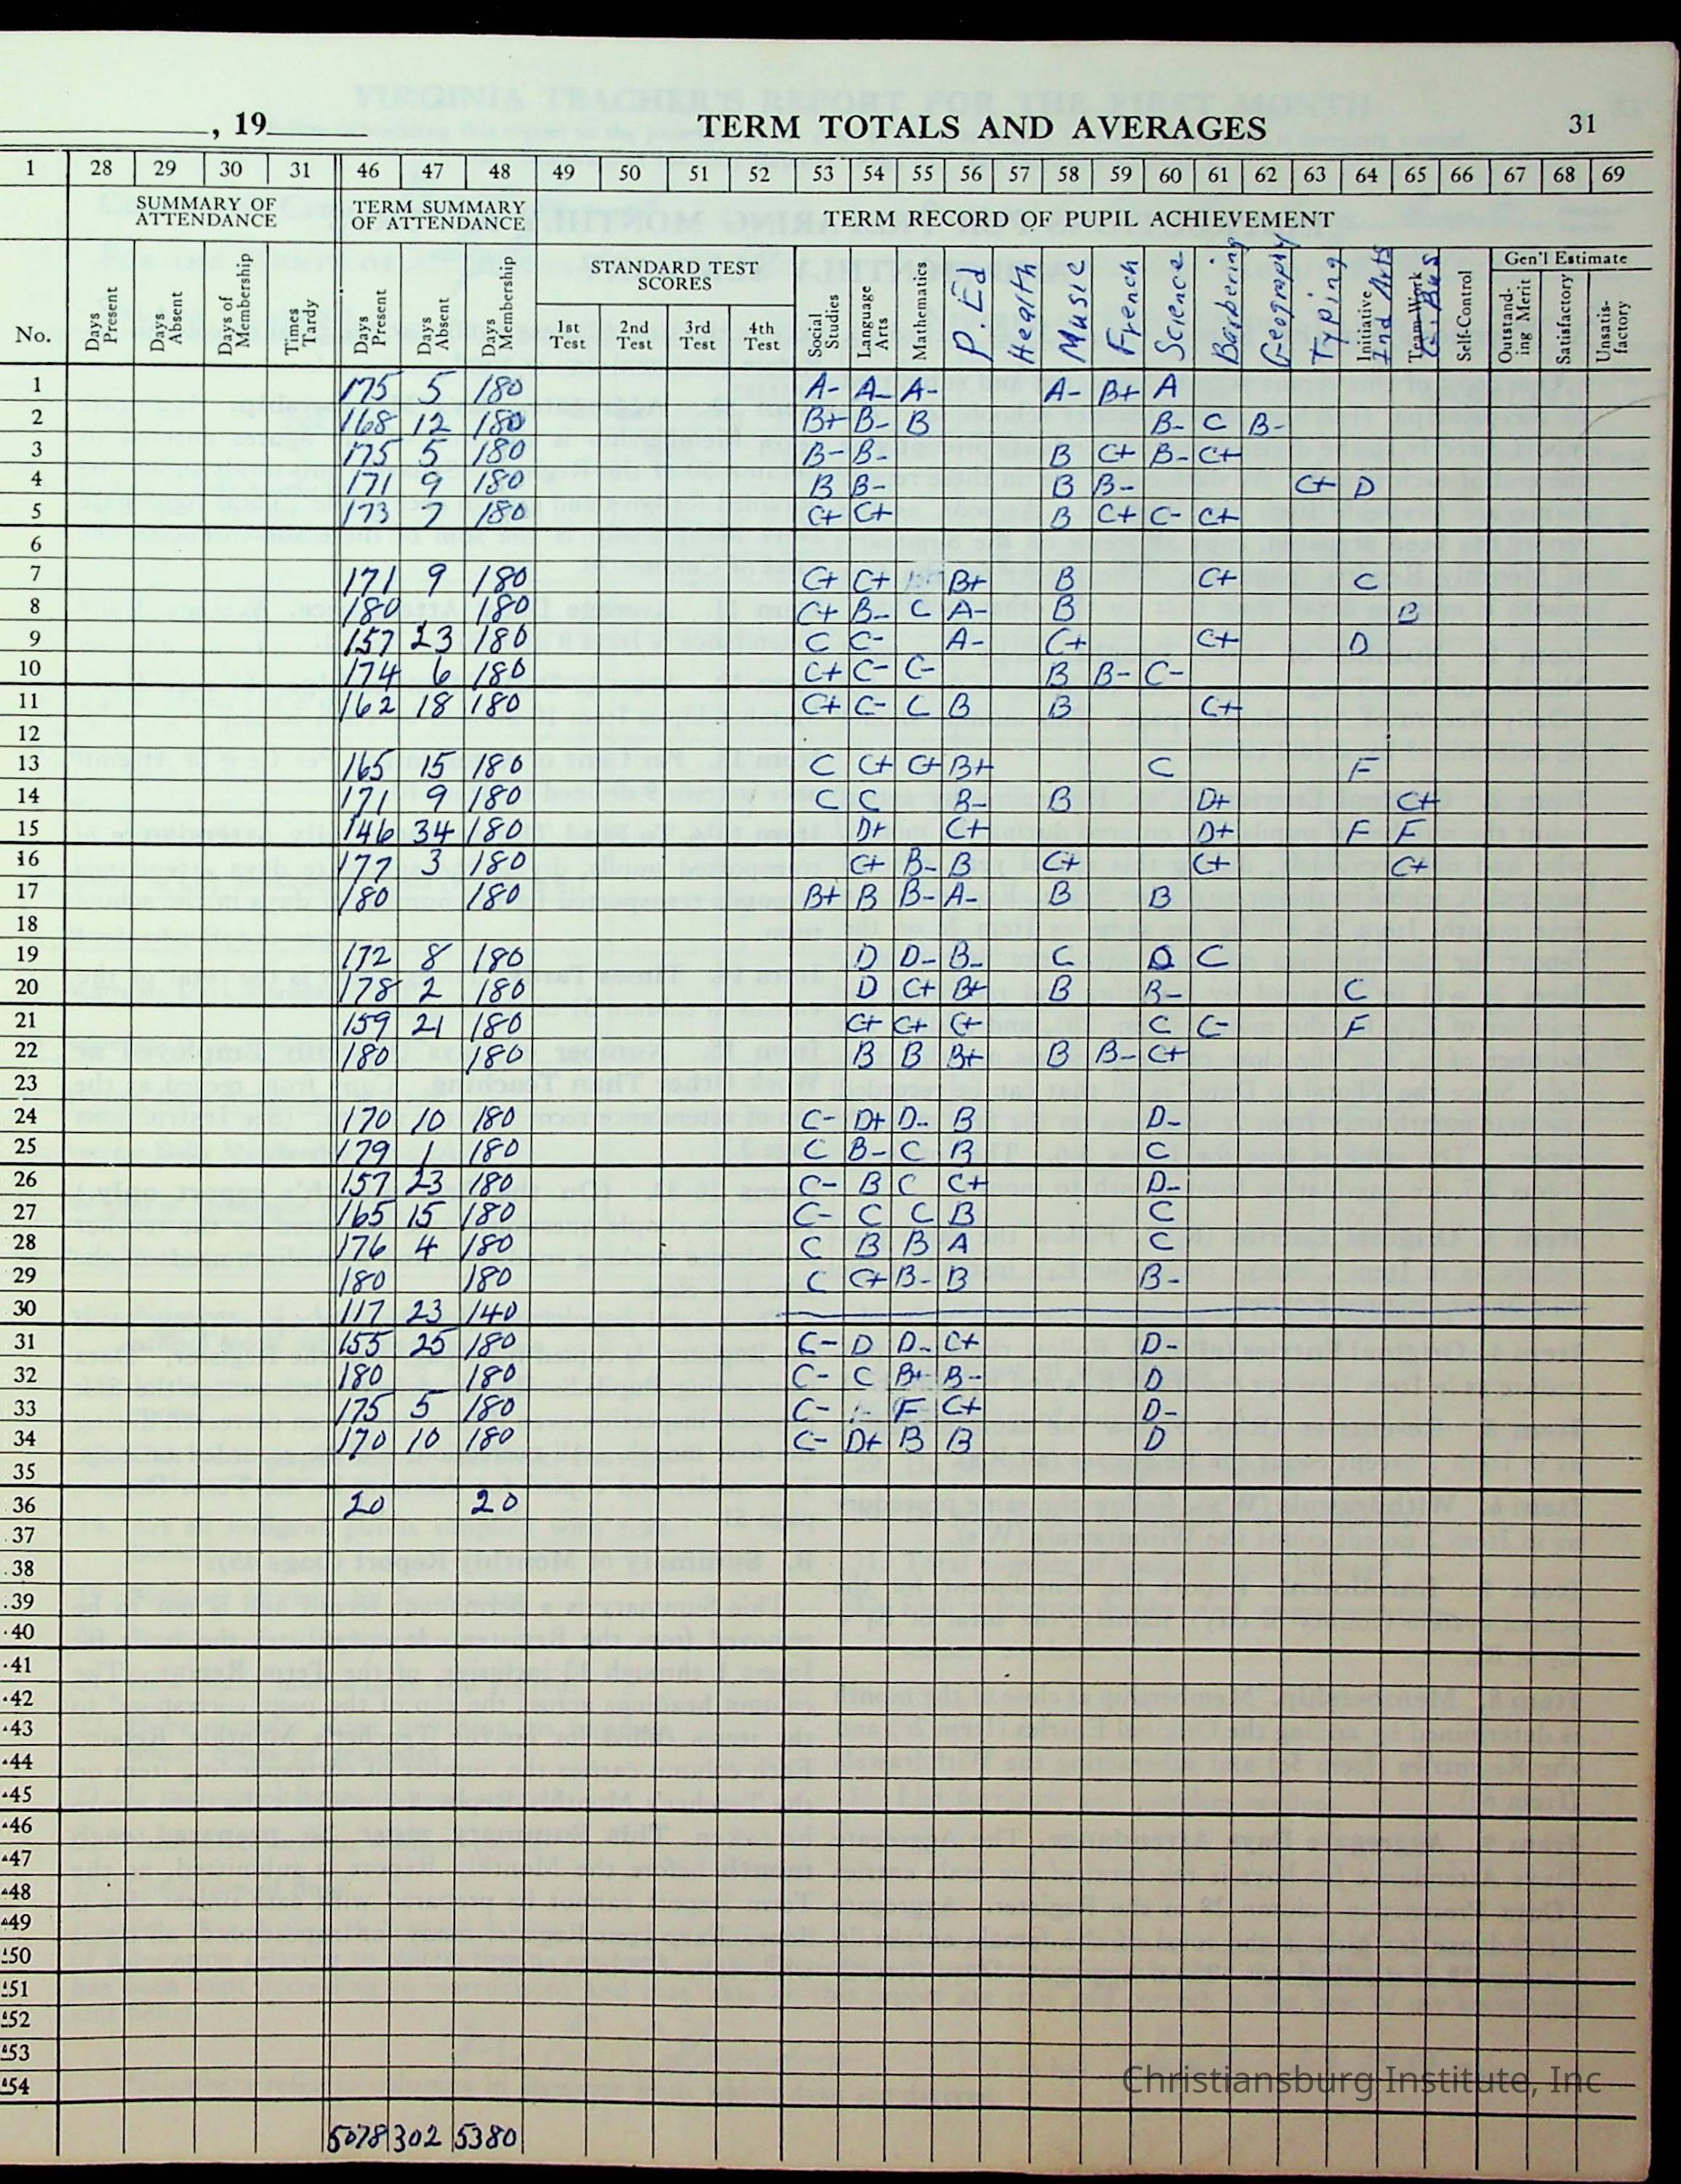 , 19 TERM TOTALS AND AVERAGES 31
1 28 29 30 31 46 47 48 49 50 51 52 53 54 55 56 57 58 59 60 61 62 63 64 65 66 67 68 69
SUMMARY OF ATTENDANCE TERM SUMMARY OF ATTENDANCE TERM RECORD OF PUPIL ACHIEVEMENT
STANDARD TEST SCORES Gen'l Estimate
No. Days Present Days Absent Days of Membership Times Tardy Days Present Days Absent Days Membership 1st Test 2nd Test 3rd Test 4th Test Social Studies Language Arts Mathematics P. Ed Health Music French Science Barbering Geography Typing Initiative Ind Arts Team-Work G. Bus Self-Control Outstanding Merit Satisfactory Unsatisfactory
1 175 5 180 A- A- A- A- B+ A
2 168 12 180 B+ B- B B- C B-
3 175 5 180 B- B- B C+ B- C+
4 171 9 180 B B- B B- C+ D
5 173 7 180 C+ C+ B C+ C- C+
6
7 171 9 180 C+ C+ B+ B C+ C
8 180 180 C+ B- C A- B B
9 157 23 180 C C- A- C+ C+ D
10 174 6 180 C+ C- C- B B- C-
11 162 18 180 C+ C- C B B C+
12
13 165 15 180 C C+ C+ B+ C F
14 171 9 180 C C B- B D+ C+
15 146 34 180 D+ C+ D+ F F
16 177 3 180 C+ B- B C+ C+ C+
17 180 180 B+ B B- A- B B
18
19 172 8 180 D D- B- C D C
20 178 2 180 D C+ B+ B B- C
21 159 21 180 C+ C+ C+ C C- F
22 180 180 B B B+ B B- C+
23
24 170 10 180 C- D+ D- B D-
25 179 1 180 C B- C B C
26 157 23 180 C- B C C+ D-
27 165 15 180 C- C C B C
28 176 4 180 C B B A C
29 180 180 C C+ B- B B-
30 117 23 140
31 155 25 180 C- D D- C+ D-
32 180 180 C- C B+ B- D
33 175 5 180 C- F C+ D-
34 170 10 180 C- D+ B B D
35
36 20 20
37
38
39
40
41
42
43
44
45
46
47
48
49
50
51
52
53
54
5078 302 5380
Christiansburg Institute, Inc